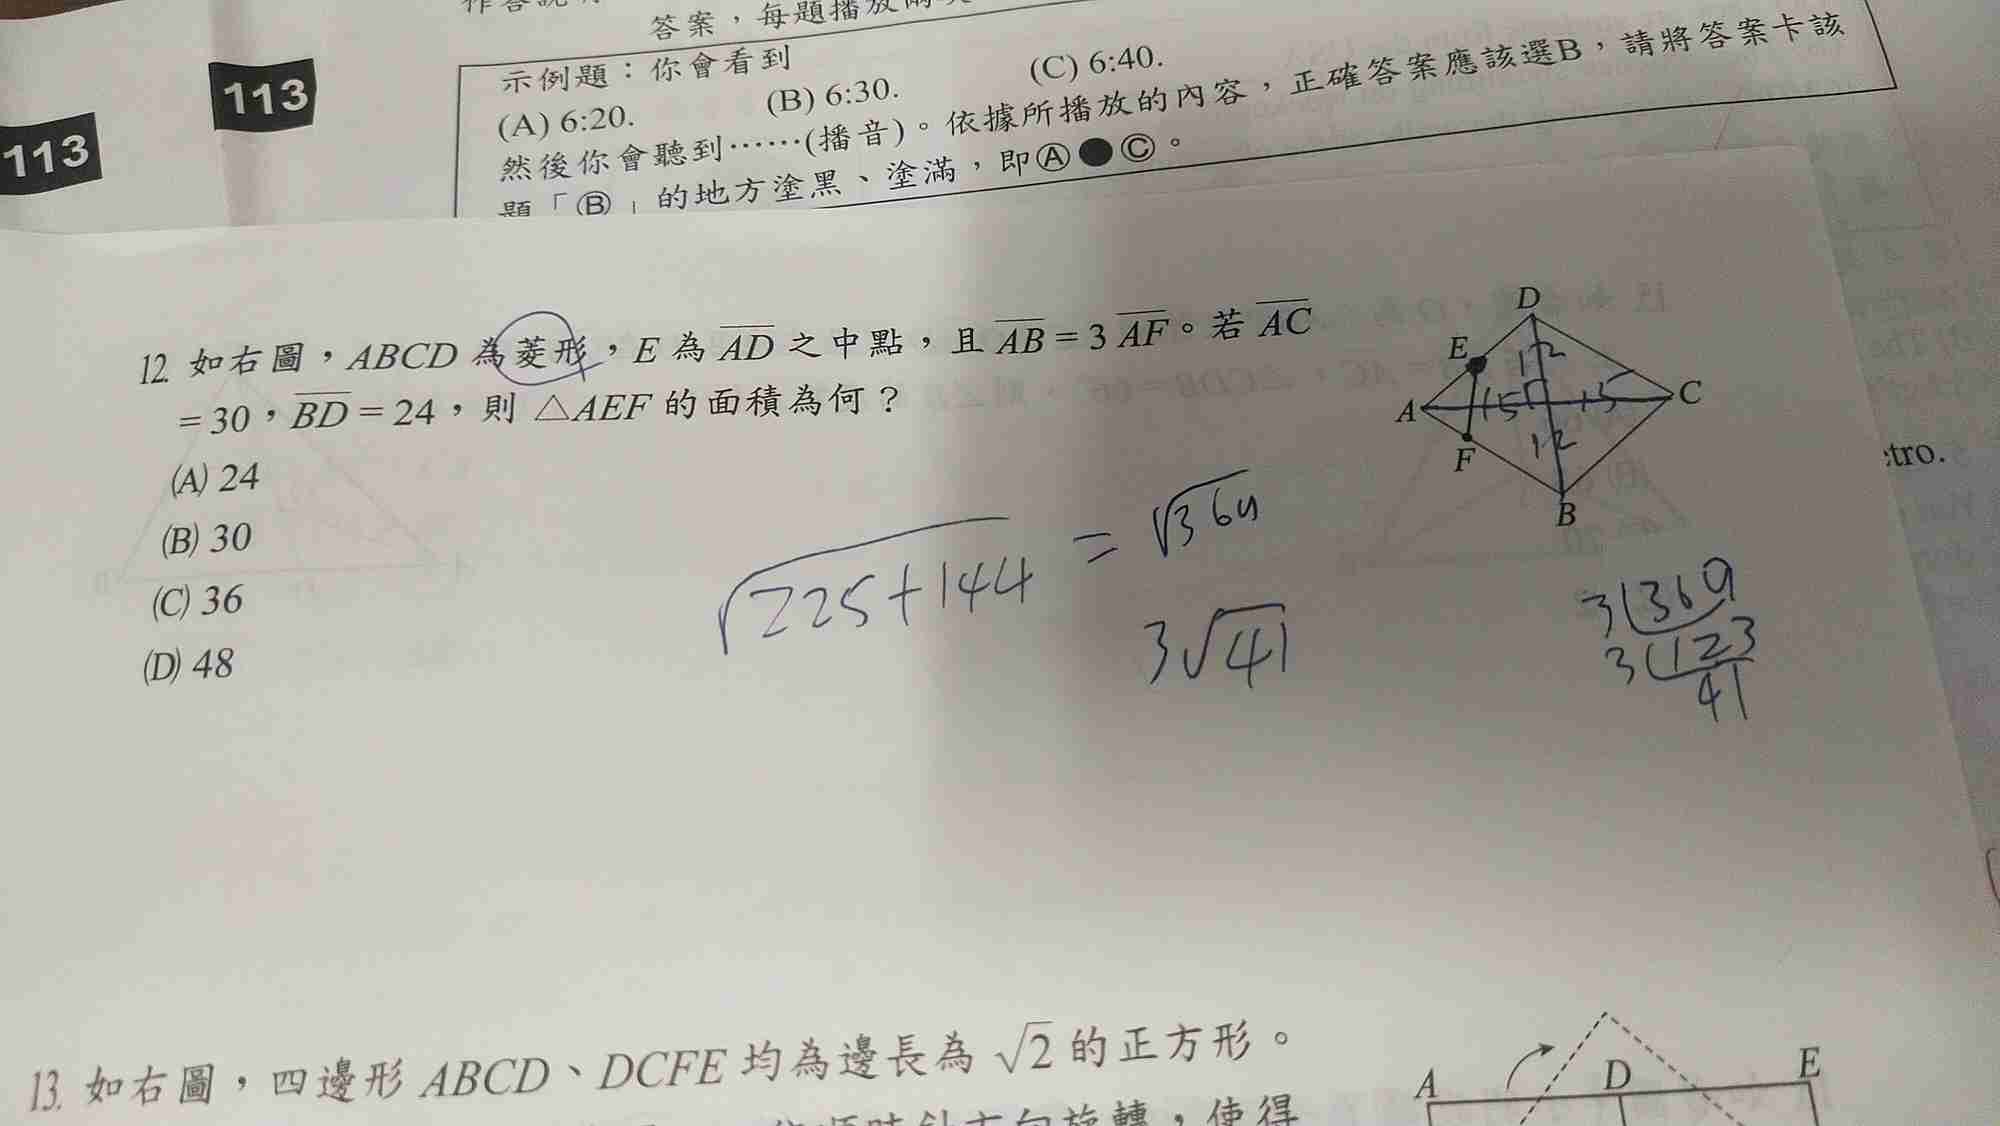 答案，每題播放兩
113
113
示例題：你會看到
(A) 6:20. (B) 6:30. (C) 6:40.
然後你會聽到……(播音)。依據所播放的內容，正確答案應該選B，請將答案卡該
題「Ⓑ」的地方塗黑、塗滿，即Ⓐ●Ⓒ。
12. 如右圖，ABCD 為菱形，E 為 AD 之中點，且 AB = 3 AF。若 AC
= 30，BD = 24，則 △AEF 的面積為何？
(A) 24
(B) 30
(C) 36
(D) 48
D
E
12
A
15
15
C
12
F
B
tro.
√225+144 = √369
3√41
3 369
3 123
41
13. 如右圖，四邊形 ABCD、DCFE 均為邊長為 √2 的正方形。
方向旋轉，使得
A
D
E